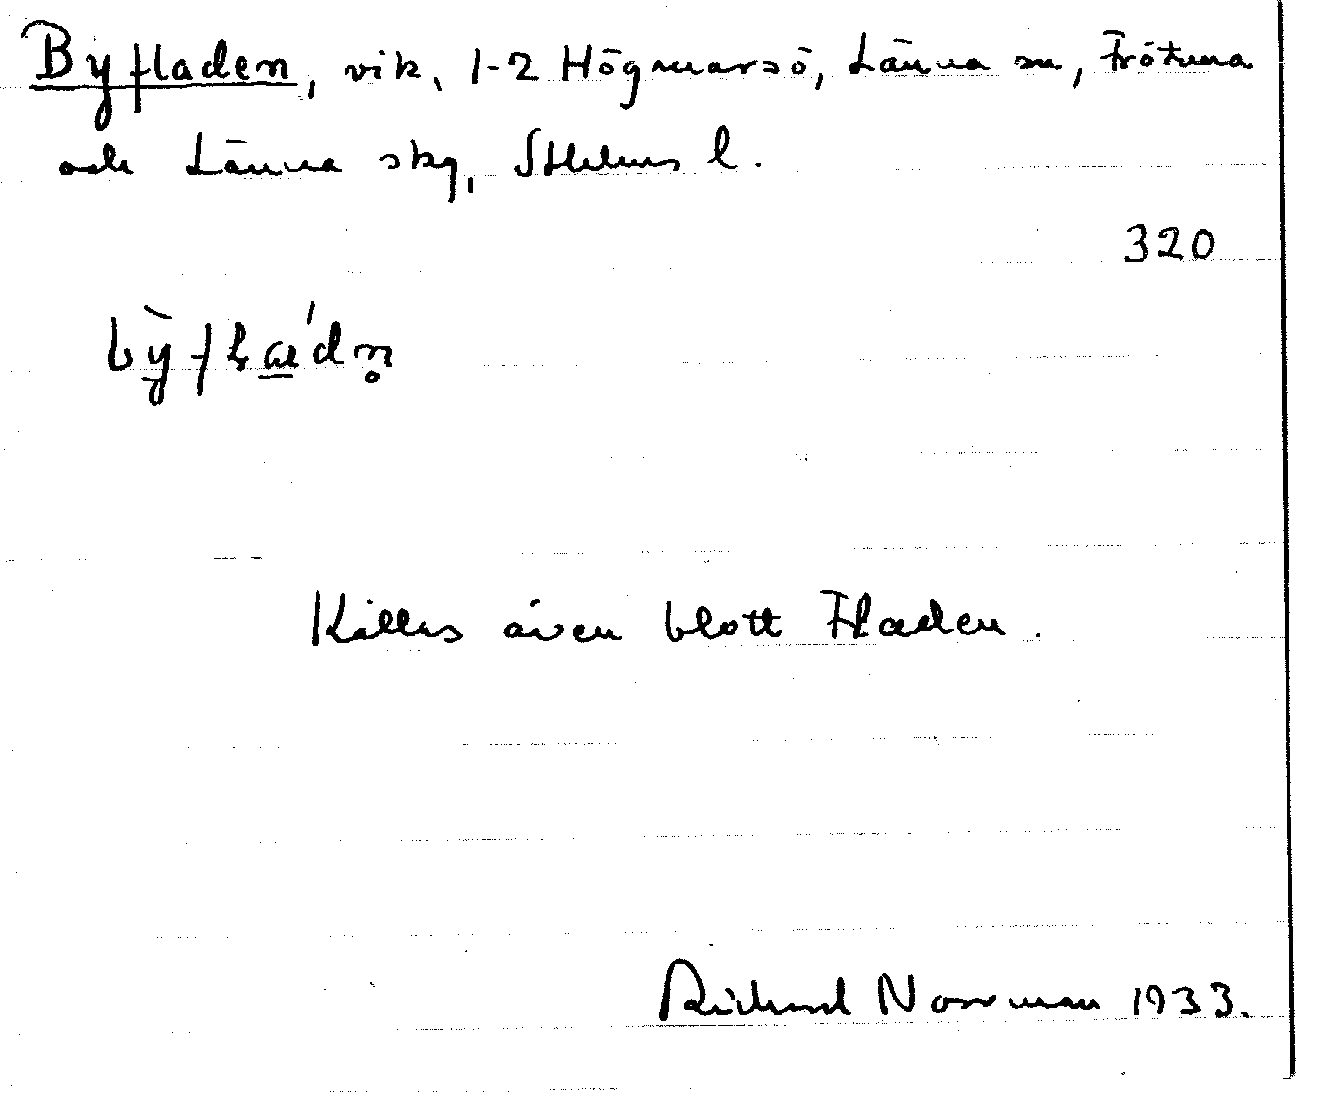 Byfladen, vik, 1-2 Högmarsö, Länna sn, Frötuna
och Länna skg, Sthlms l.
320
bỳflaádn̥
Kallas även blott Fladen.
Richard Norrman 1933.